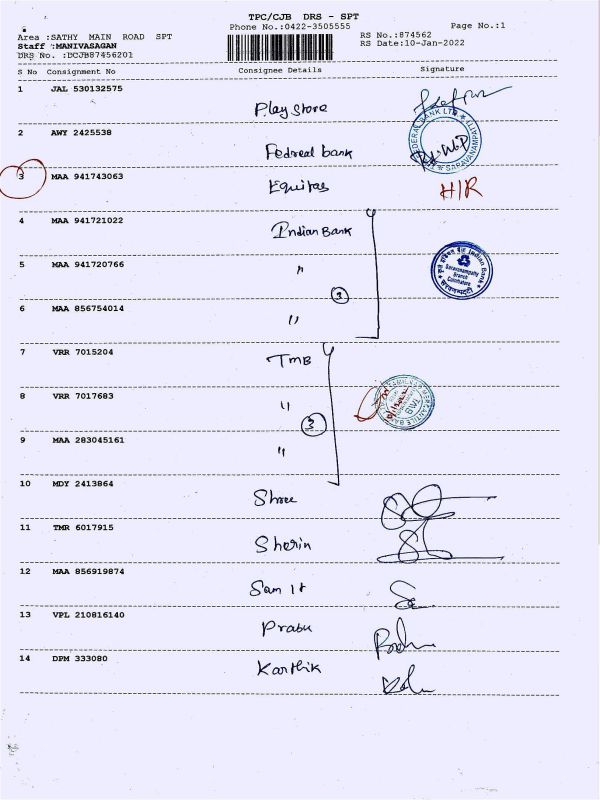 TPC/CJB DRS - SPT
Phone No.:0422-3505555
Page No.:1
Area :SATHY MAIN ROAD SPT
Staff :MANIVASAGAN
DRS No. :DCJB87456201
RS No.:874562
RS Date:10-Jan-2022
S No Consignment No Consignee Details Signature
1 JAL 530132575 Play store
2 AWY 2425538 Fedreal bank
FEDERAL BANK LTD. SARAVANAMPATTI
3 MAA 941743063 Equitas H/R
4 MAA 941721022 Indian Bank
5 MAA 941720766 "
Indian Bank
Saravanampatty
Branch
Coimbatore
3
6 MAA 856754014 "
7 VRR 7015204 TMB
8 VRR 7017683 "
TAMILNAD MERCANTILE BANK
TMB
3
9 MAA 283045161 "
10 MDY 2413864 Shree
11 TMR 6017915 Sherin
12 MAA 856919874 Sam It
13 VPL 210816140 Prabu
14 DPM 333080 Karthik